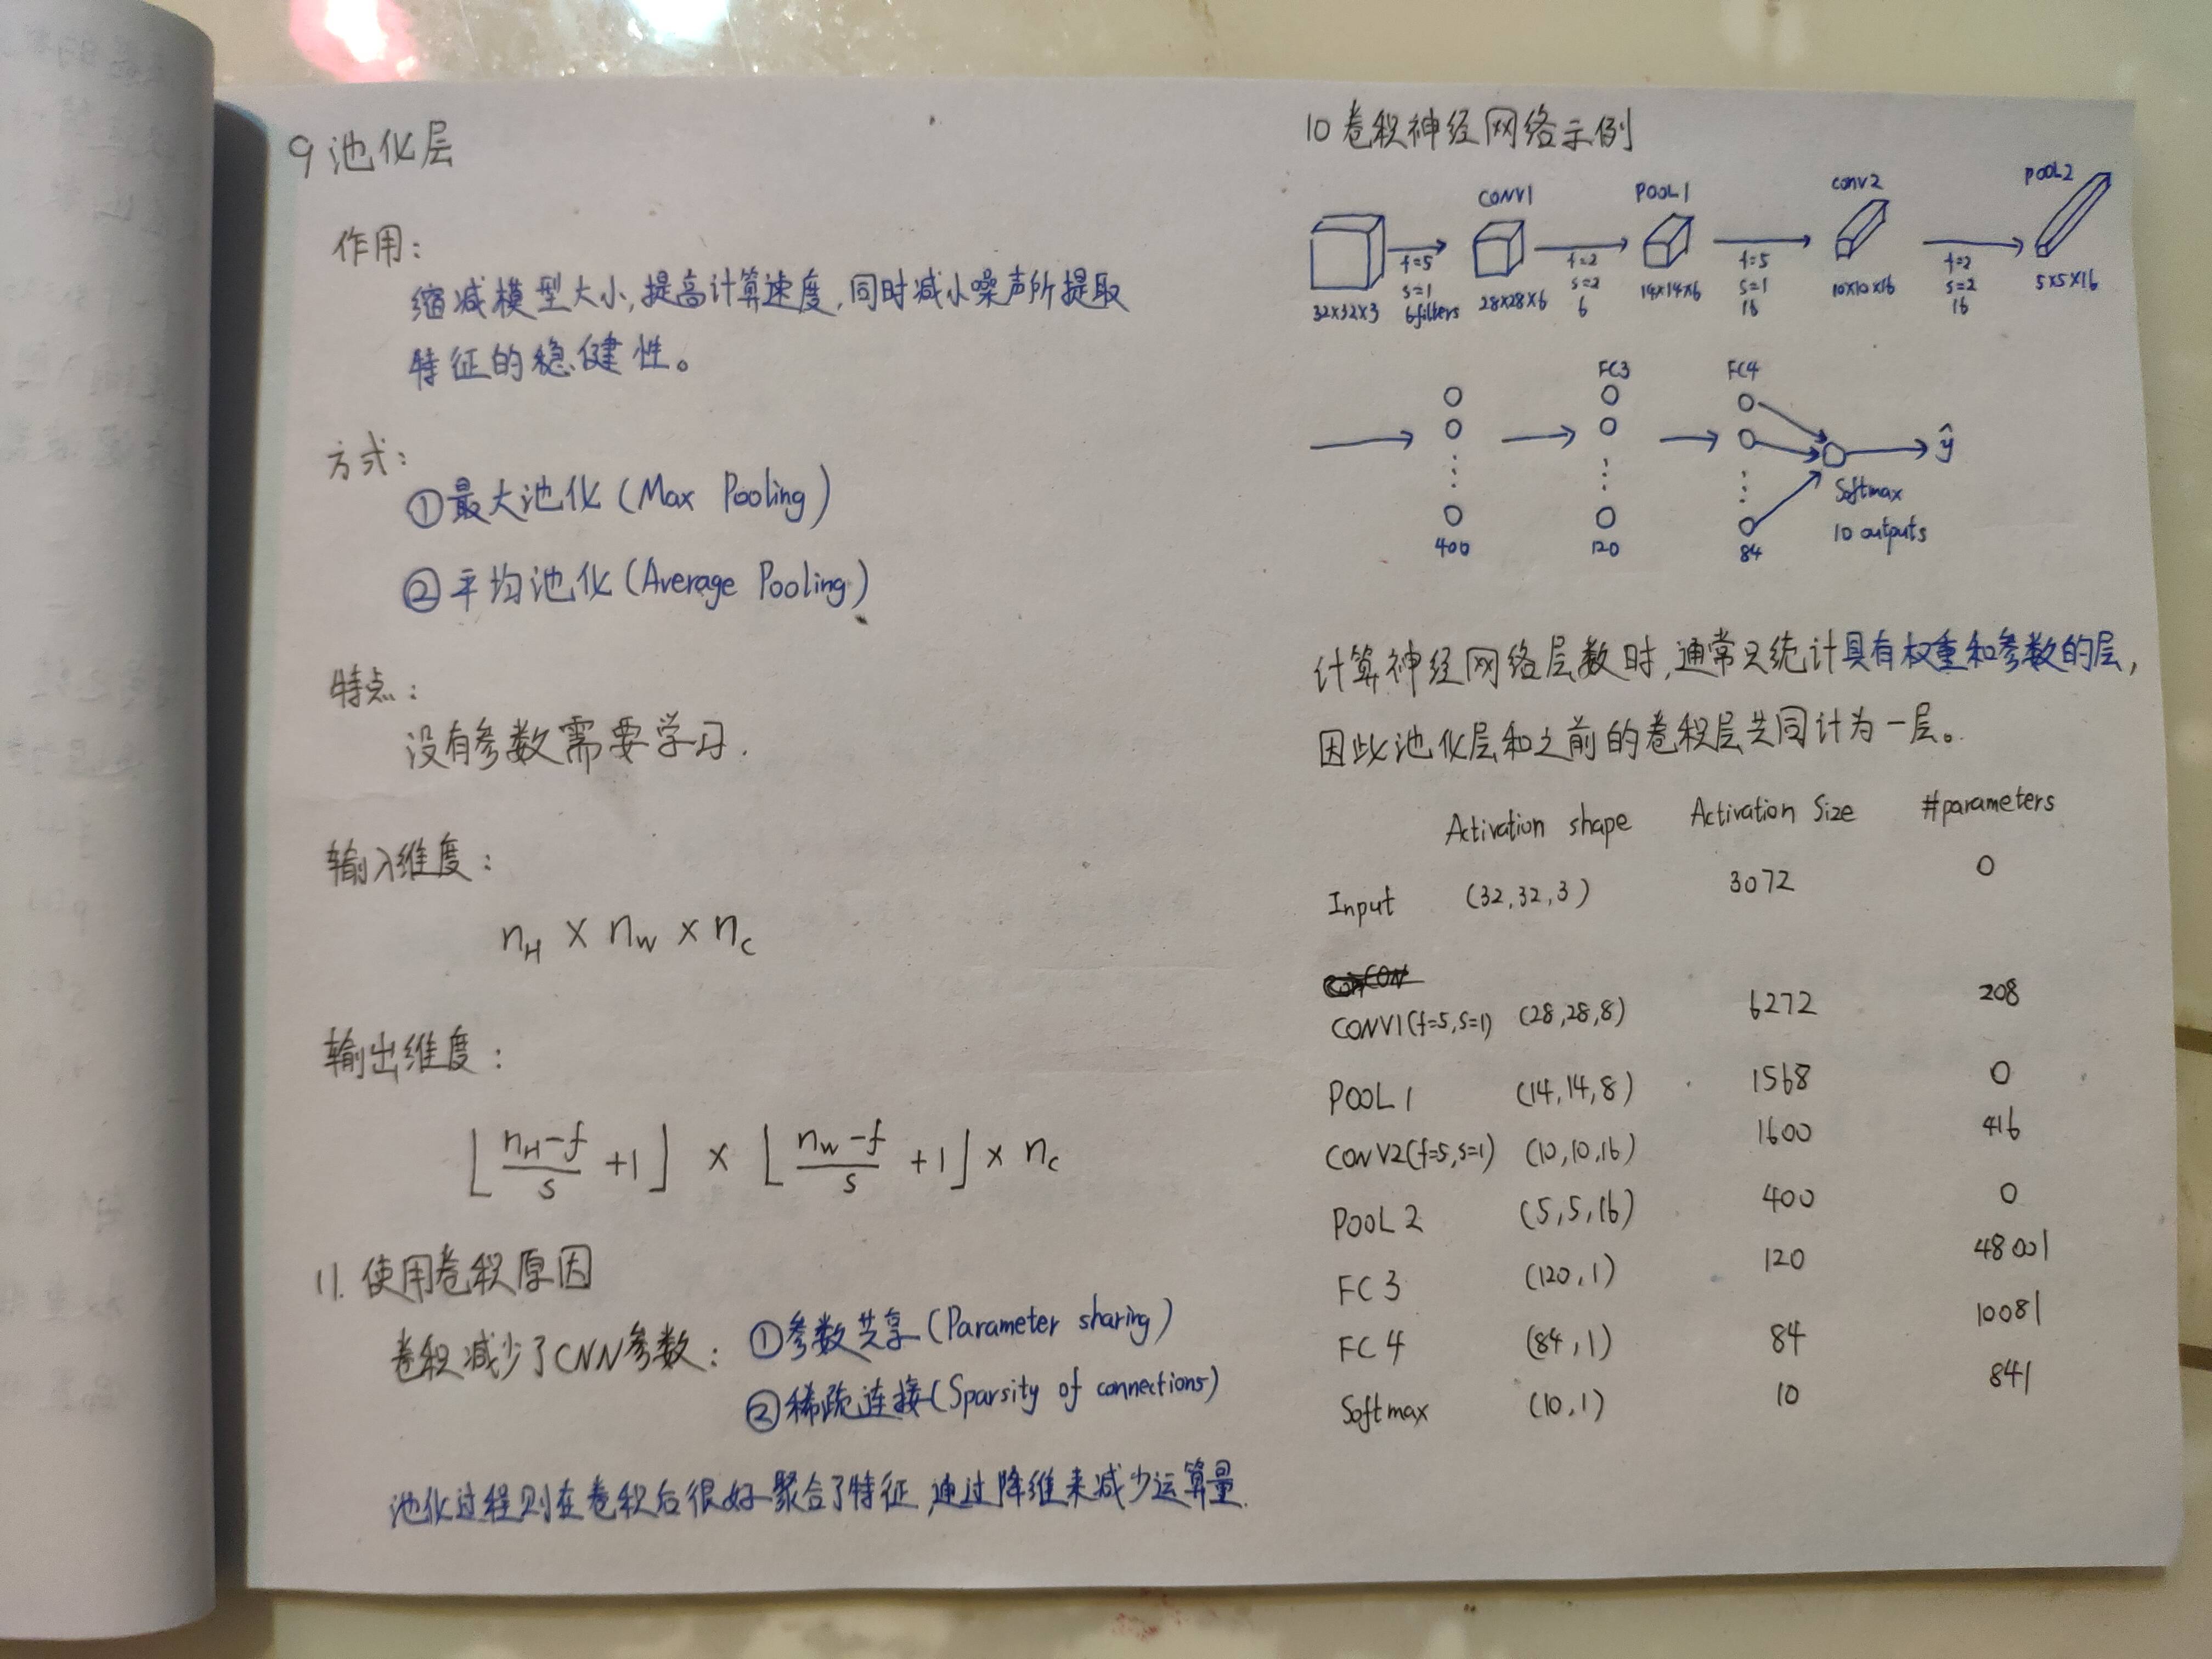 9 池化层
作用:
缩减模型大小,提高计算速度,同时减小噪声所提取
特征的稳健性。
方式:
①最大池化(Max Pooling)
②平均池化(Average Pooling)
特点:
没有参数需要学习.
输入维度:
n_H × n_W × n_C
输出维度:
⌊(n_H-f)/s +1⌋ × ⌊(n_W-f)/s +1⌋ × n_C
11. 使用卷积原因
卷积减少了CNN参数: ①参数共享(Parameter sharing)
②稀疏连接(Sparsity of connections)
池化过程则在卷积后很好聚合了特征,通过降维来减少运算量.
10 卷积神经网络示例
CONV1 POOL1 conv2 POOL2
f=5 f=2 f=5 f=2
s=1 s=2 s=1 s=2
6filters 6 16 16
32x32x3 28x28x6 14x14x6 10x10x16 5x5x16
FC3 FC4
ŷ
Softmax
10 outputs
400 120 84
计算神经网络层数时,通常只统计具有权重和参数的层,
因此池化层和之前的卷积层共同计为一层。
Activation shape Activation Size #parameters
Input (32,32,3) 3072 0
CONV1(f=5,s=1) (28,28,8) 6272 208
POOL1 (14,14,8) 1568 0
CONV2(f=5,s=1) (10,10,16) 1600 416
POOL2 (5,5,16) 400 0
FC3 (120,1) 120 48001
FC4 (84,1) 84 10081
Softmax (10,1) 10 841